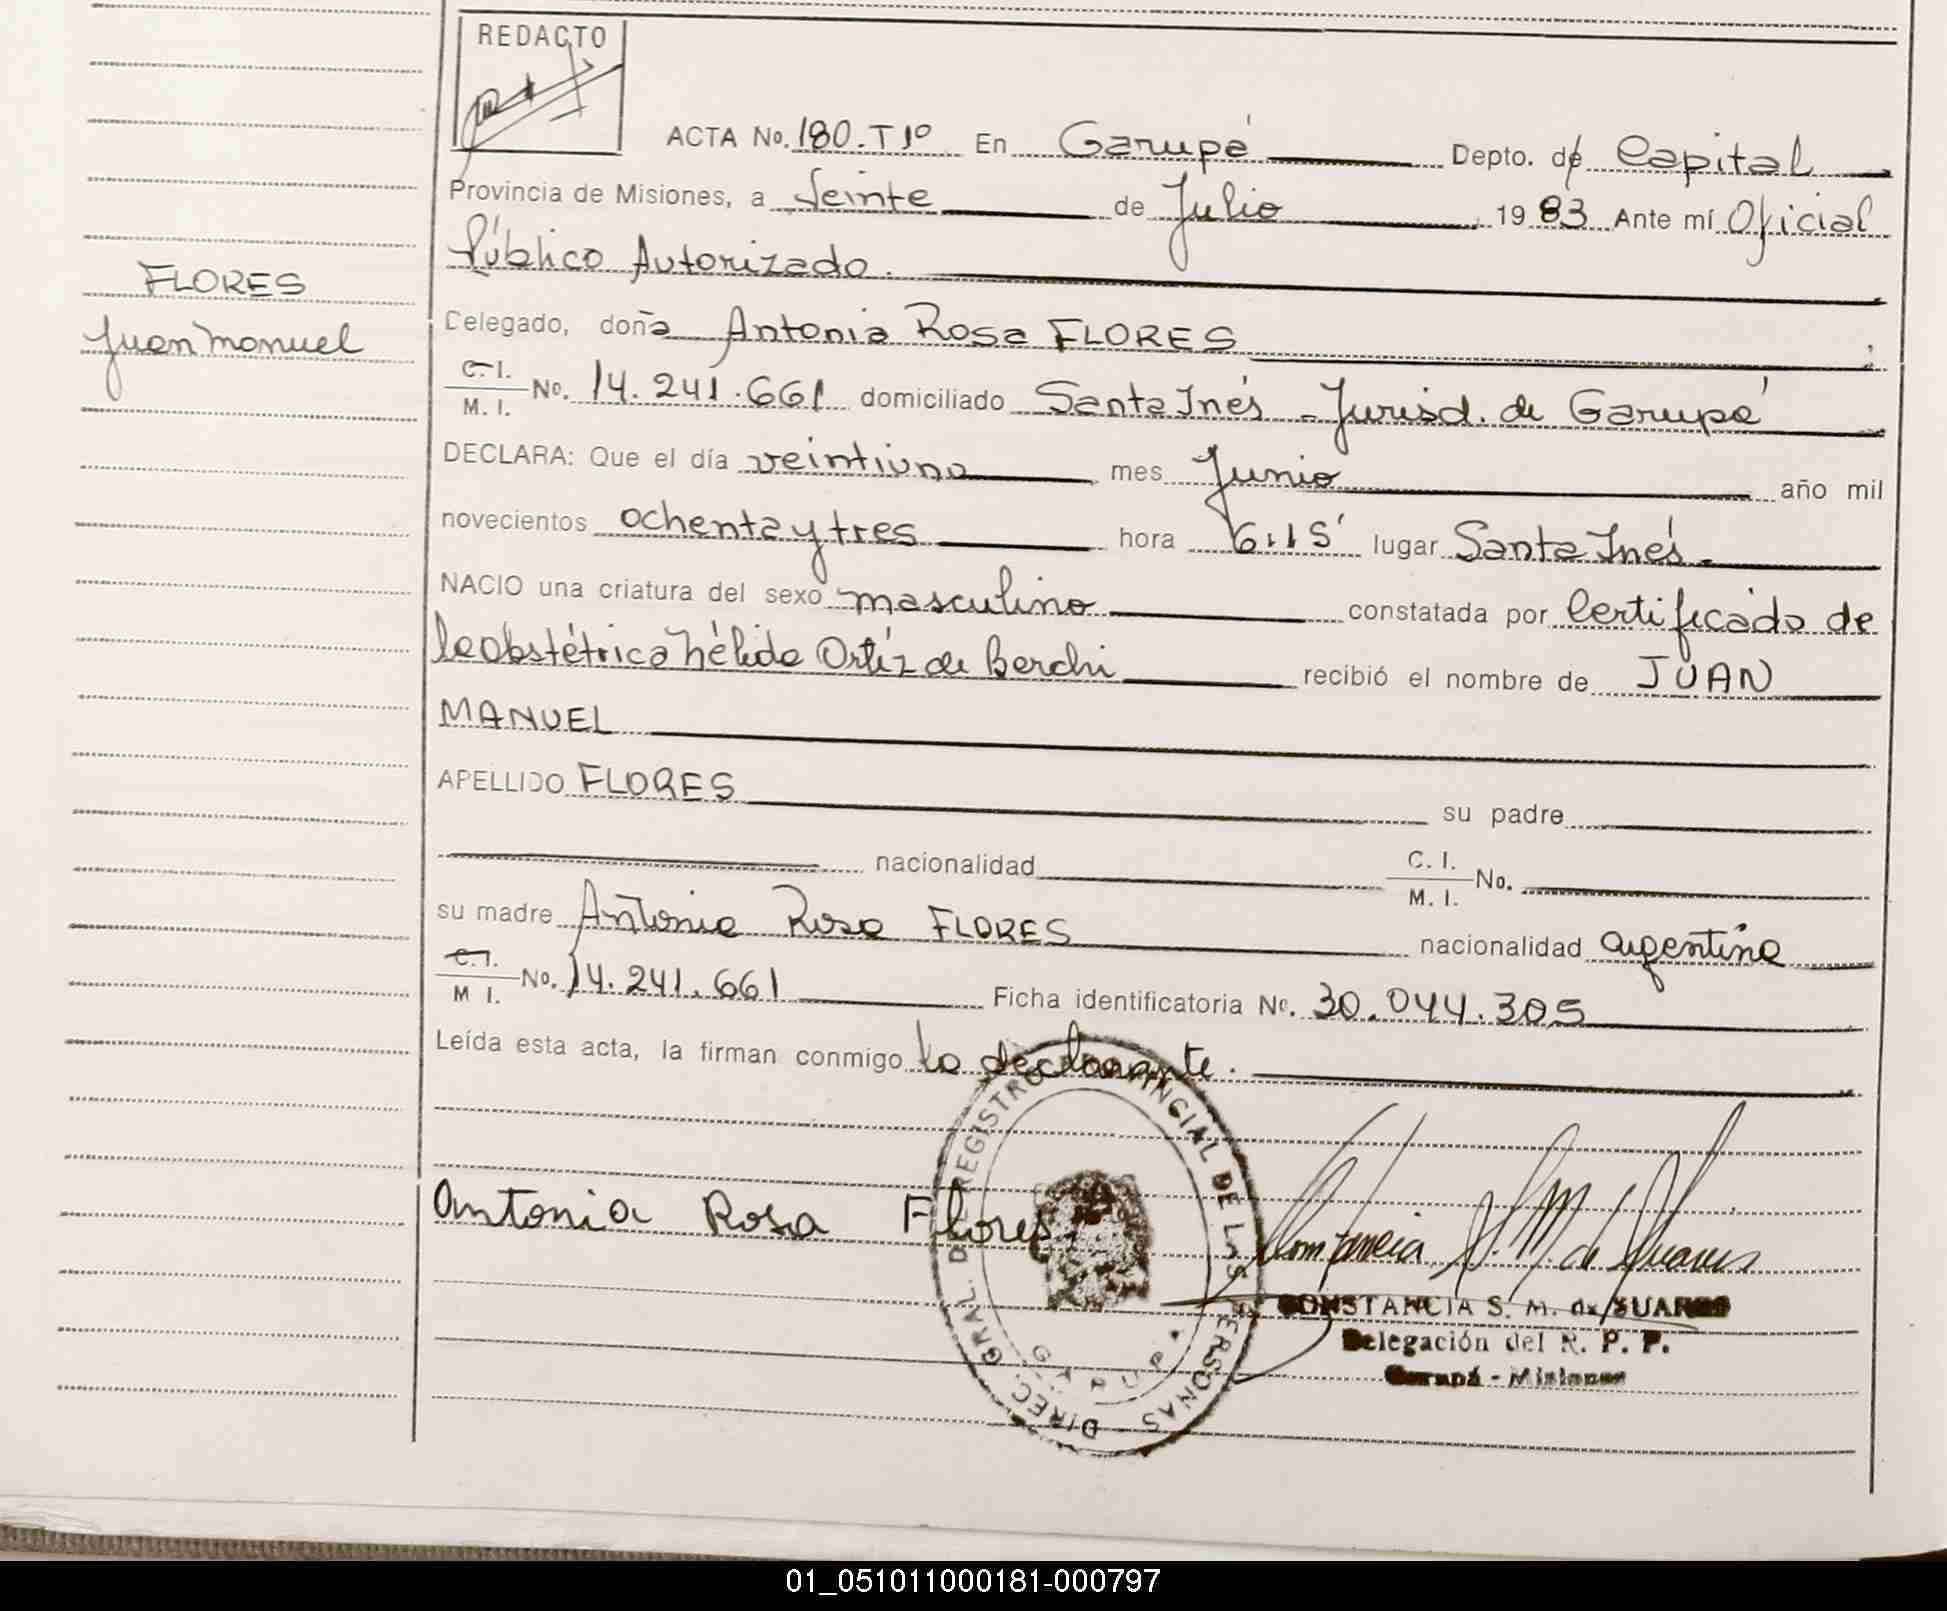 REDACTO
ACTA No. 180.T1º En Garupá Depto. de Capital
Provincia de Misiones, a Veinte de Julio 1983 Ante mí Oficial
Público Autorizado.
FLORES
Delegado, doña Antonia Rosa FLORES
Juan Manuel
C.I. / M.I. No. 14.241.661 domiciliado Santa Inés - Jurisd. de Garupá
DECLARA: Que el día veintiuno mes Junio año mil
novecientos ochenta y tres hora 6.15' lugar Santa Inés.
NACIO una criatura del sexo masculino constatada por Certificado de
la obstétrica Nélida Ortíz de Berchi recibió el nombre de JUAN
MANUEL
APELLIDO FLORES su padre
nacionalidad C.I. / M.I. No.
su madre Antonia Rosa FLORES nacionalidad argentina
C.I. / M I. No. 14.241.661 Ficha identificatoria No. 30.044.305
Leída esta acta, la firman conmigo la declarante.
Antonia Rosa Flores
DIREC. GRAL. DEL REGISTRO PROVINCIAL DE LAS PERSONAS
GARUPA
Constancia S. M. de Suares
CONSTANCIA S. M. de SUARES
Delegación del R. P. P.
Garupá - Misiones
01_051011000181-000797